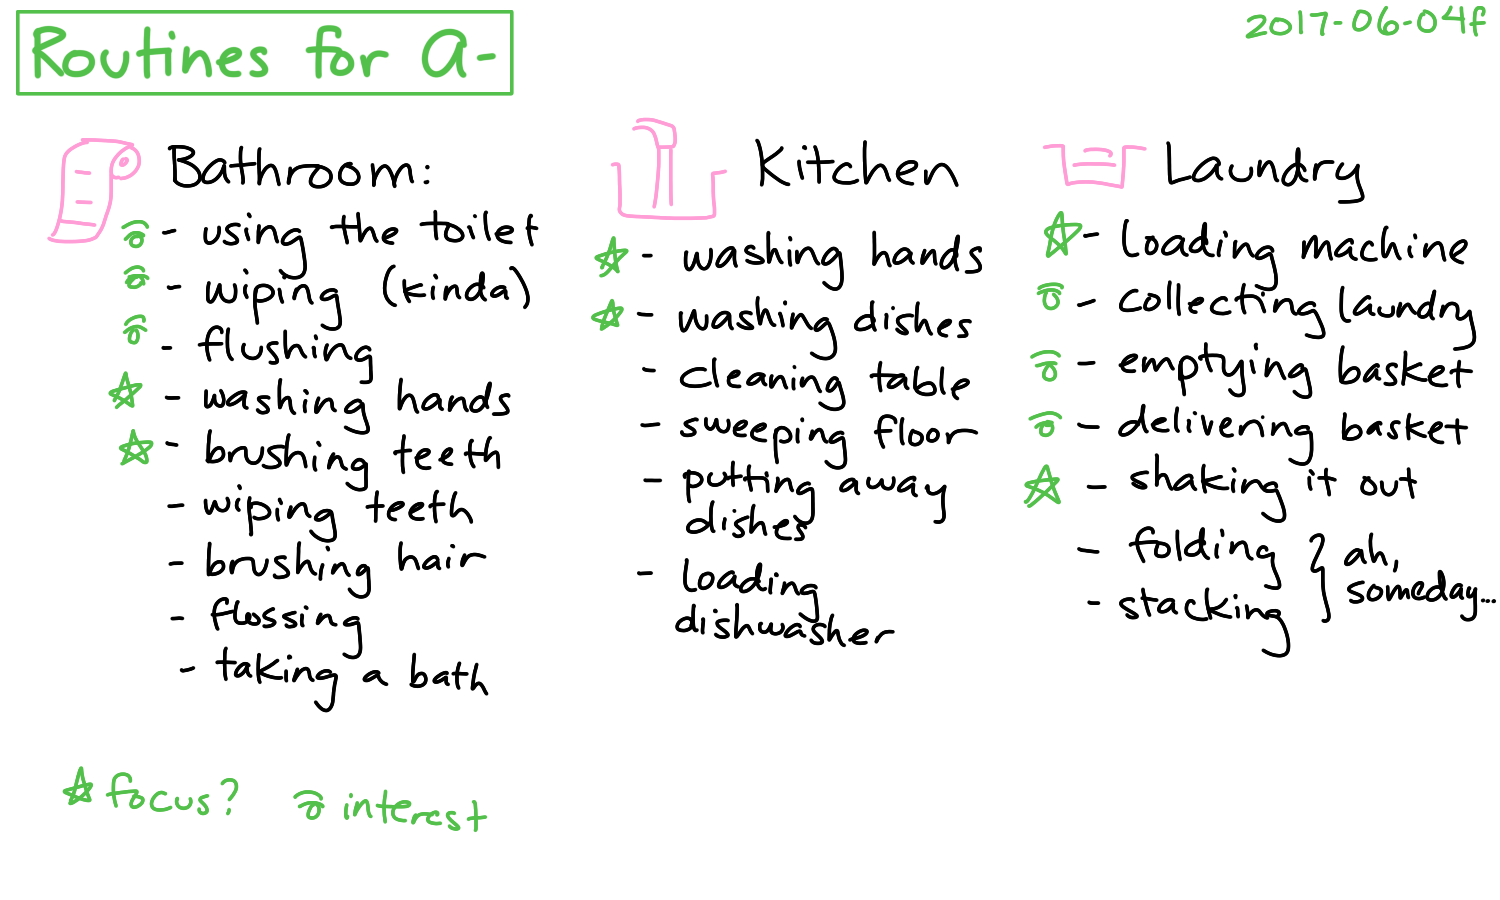 Routines for A-
2017-06-04f
Bathroom:
- using the toilet
- wiping (kinda)
- flushing
- washing hands
- brushing teeth
- wiping teeth
- brushing hair
- flossing
- taking a bath
Kitchen
- washing hands
- washing dishes
- cleaning table
- sweeping floor
- putting away
dishes
- loading
dishwasher
Laundry
- loading machine
- collecting laundry
- emptying basket
- delivering basket
- shaking it out
- folding
- stacking
ah,
someday...
focus?
interest